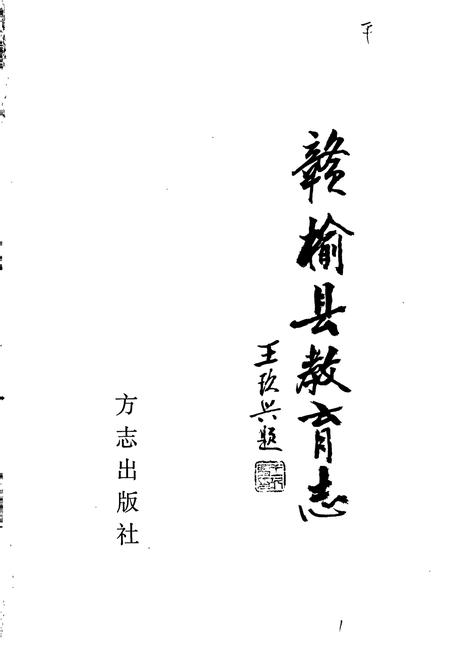 赣榆县教育志
王玖兴题
方志出版社